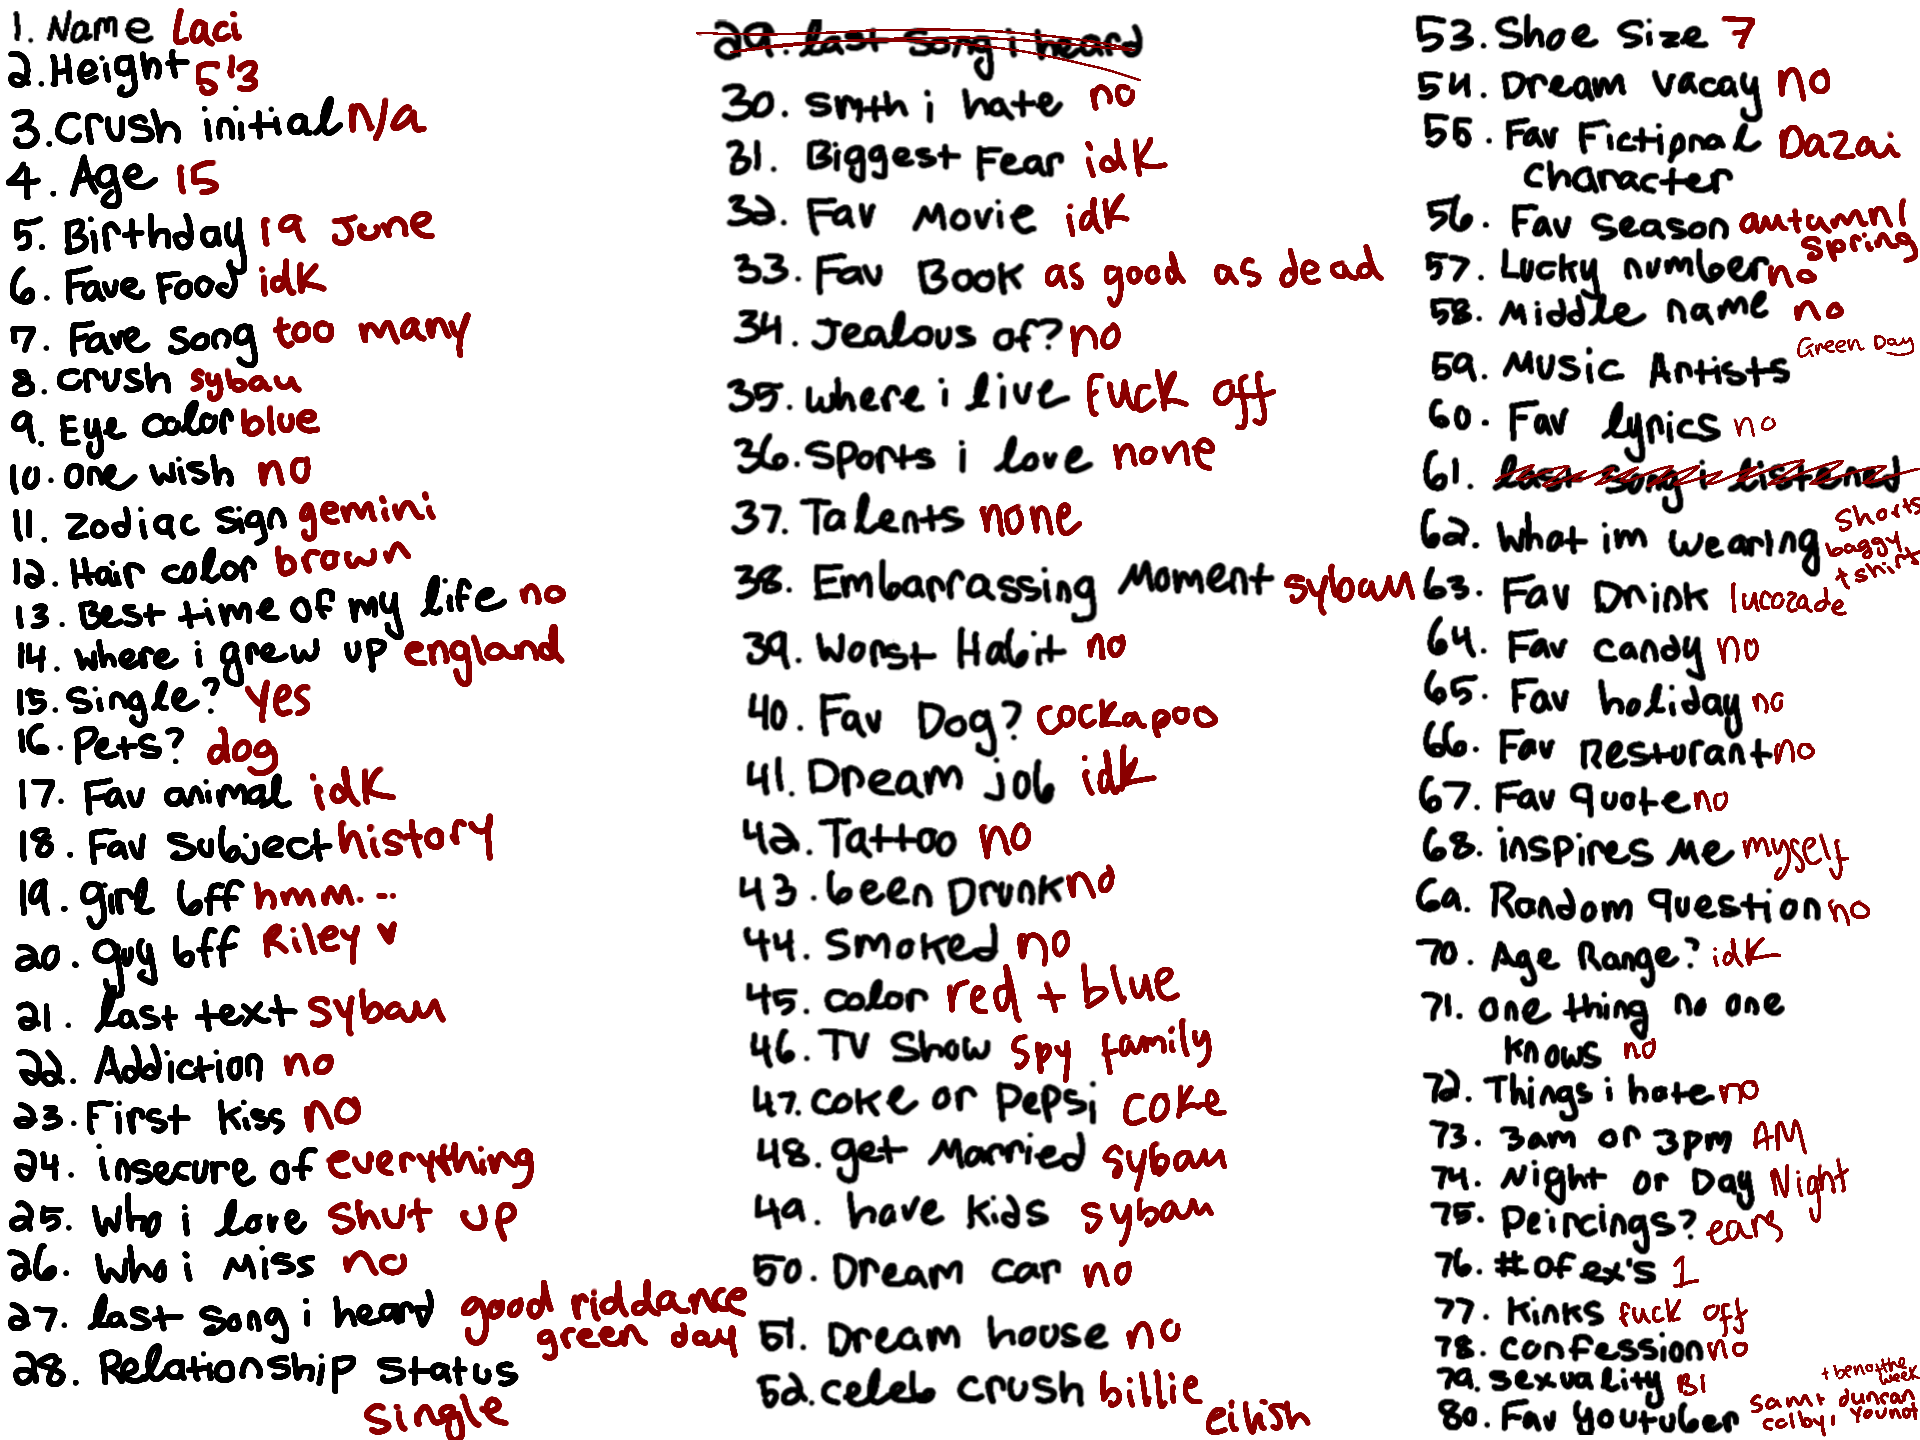 1. Name Laci
2. Height 5'3
3. Crush initial n/a
4. Age 15
5. Birthday 19 June
6. Fave Food idk
7. Fave song too many
8. crush sybau
9. Eye color blue
10. one wish no
11. Zodiac sign gemini
12. Hair color brown
13. Best time of my life no
14. where i grew up england
15. Single? yes
16. Pets? dog
17. Fav animal idk
18. Fav subject history
19. girl bff hmm...
20. guy bff Riley ♥
21. last text sybau
22. Addiction no
23. First kiss no
24. insecure of everything
25. Who i love shut up
26. Who i miss no
27. last song i heard good riddance
green day
28. Relationship status
single
29. last song i heard
30. smth i hate no
31. Biggest Fear idk
32. Fav Movie idk
33. Fav Book as good as dead
34. Jealous of? no
35. where i live fuck off
36. Sports i love none
37. Talents none
38. Embarrassing Moment sybau
39. Worst Habit no
40. Fav Dog? cockapoo
41. Dream job idk
42. Tattoo no
43. been Drunk no
44. Smoked no
45. color red + blue
46. TV Show spy family
47. coke or Pepsi coke
48. get Married sybau
49. have kids sybau
50. Dream car no
51. Dream house no
52. celeb crush billie
eilish
53. Shoe Size 7
54. Dream vacay no
55. Fav Fictipnal Dazai
character
56. Fav season autumn/
spring
57. Lucky number no
58. Middle name no
59. Music Artists Green Day
60. Fav lyrics no
61. last song i listened
62. What im wearing shorts
baggy
tshirt
63. Fav Drink lucozade
64. Fav candy no
65. Fav holiday no
66. Fav Resturant no
67. Fav quote no
68. inspires Me myself
69. Random question no
70. Age Range? idk
71. one thing no one
knows no
72. Things i hate no
73. 3am or 3pm AM
74. Night or Day Night
75. Peircings? ears
76. # of ex's 1
77. Kinks fuck off
78. confession no
79. sexuality Bi
80. Fav Youtuber sam+ duncan
colby, Younot
+benoftheweek